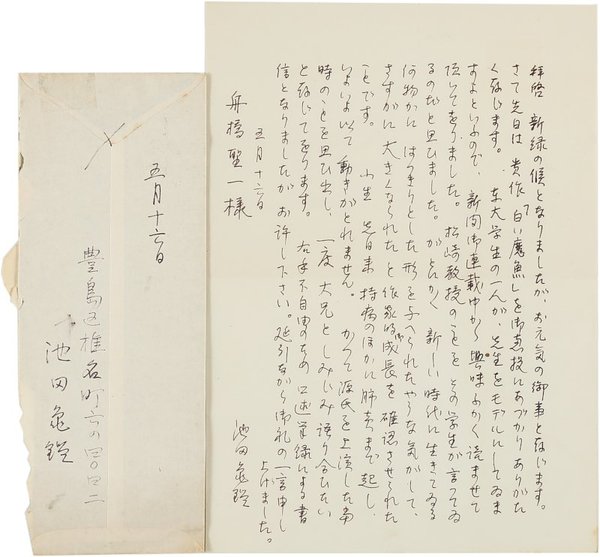 拝啓 新緑の候となりましたが、お元気の御事と存じます。
さて先日は 貴作「白い魔魚」を御恵投にあづかりありがた
く存じます。 東大学生の一人が、先生をモデルにしてゐま
すよといふので、新聞御連載中から興味ふかく読ませて
頂いてをりました。松崎教授のことを その学生が言つてゐ
るのだと思ひました。がとにかく 新しい時代に生きてゐる
何物かに はつきりとした形を与へられたやうな気がして、
さすがに 大きくなられたと 作家的御成長を確認させられた
ことです。 小生 先日来 持病のほかに 肺炎まで起し、
いよいよ以て 動きがとれません。 かつて源氏を上演した当
時のことを思ひ出し、 一度 大兄としみじみ語り合ひたい
と存じてをります。 右手不自由のため 口述筆録による書
信となりましたが お許し下さい。延引ながら御礼の一言申し
上げました。
五月十六日
池田亀鑑
舟橋聖一様
五月十六日
豊島区椎名町六の四〇四二
池田亀鑑